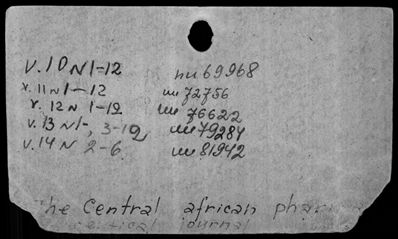 v.10 N 1-12 nu 69968
v. 11 N 1-12 nu 72756
v. 12 N 1-12 nu 76622
v. 13 N 1-, 3-12, nu 79284
v. 14 N 2-6. nu 81942
The Central african pharma
ceutical journal